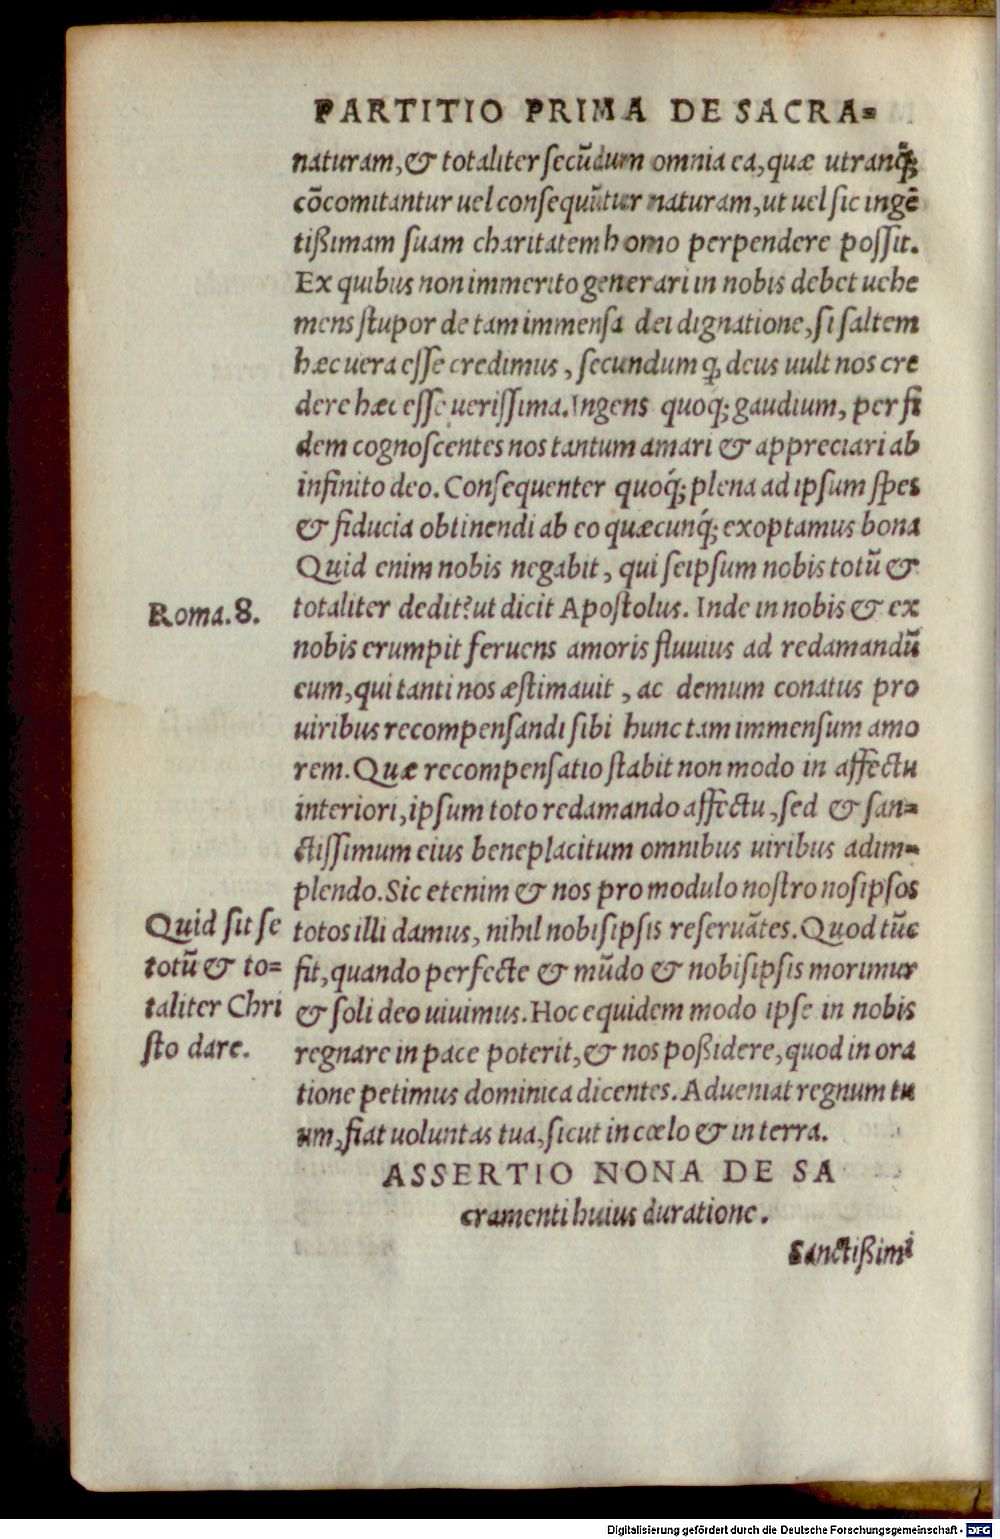 PARTITIO PRIMA DE SACRA=
naturam, & totaliter secūdum omnia ea, quæ utranq́;
cōcomitantur uel consequūtur naturam, ut uel sic ingē
tißimam suam charitatem homo perpendere possit.
Ex quibus non immerito generari in nobis debet uehe
mens stupor de tam immensa dei dignatione, si saltem
hæc uera esse credimus, secundum ꝙ deus uult nos cre
dere hæc esse uerissima. Ingens quoq́; gaudium, per fi
dem cognoscentes nos tantum amari & appreciari ab
infinito deo. Consequenter quoq́; plena ad ipsum spes
& fiducia obtinendi ab eo quæcunq́; exoptamus bona
Quid enim nobis negabit, qui seipsum nobis totū &
Roma. 8.
totaliter dedit? ut dicit Apostolus. Inde in nobis & ex
nobis erumpit feruens amoris fluuius ad redamandū
eum, qui tanti nos æstimauit, ac demum conatus pro
uiribus recompensandi sibi hunc tam immensum amo
rem. Quæ recompensatio stabit non modo in affectu
interiori, ipsum toto redamando affectu, sed & san=
ctissimum eius beneplacitum omnibus uiribus adim=
plendo. Sic etenim & nos pro modulo nostro nosipsos
Quid sit se
totū & to=
taliter Chri
sto dare.
totos illi damus, nihil nobisipsis reseruātes. Quod tūc
fit, quando perfecte & mūdo & nobisipsis morimur
& soli deo uiuimus. Hoc equidem modo ipse in nobis
regnare in pace poterit, & nos poßidere, quod in ora
tione petimus dominica dicentes. Adueniat regnum tu
um, fiat uoluntas tua, sicut in cœlo & in terra.
ASSERTIO NONA DE SA
cramenti huius duratione.
Sanctißimi
Digitalisierung gefördert durch die Deutsche Forschungsgemeinschaft - DFG